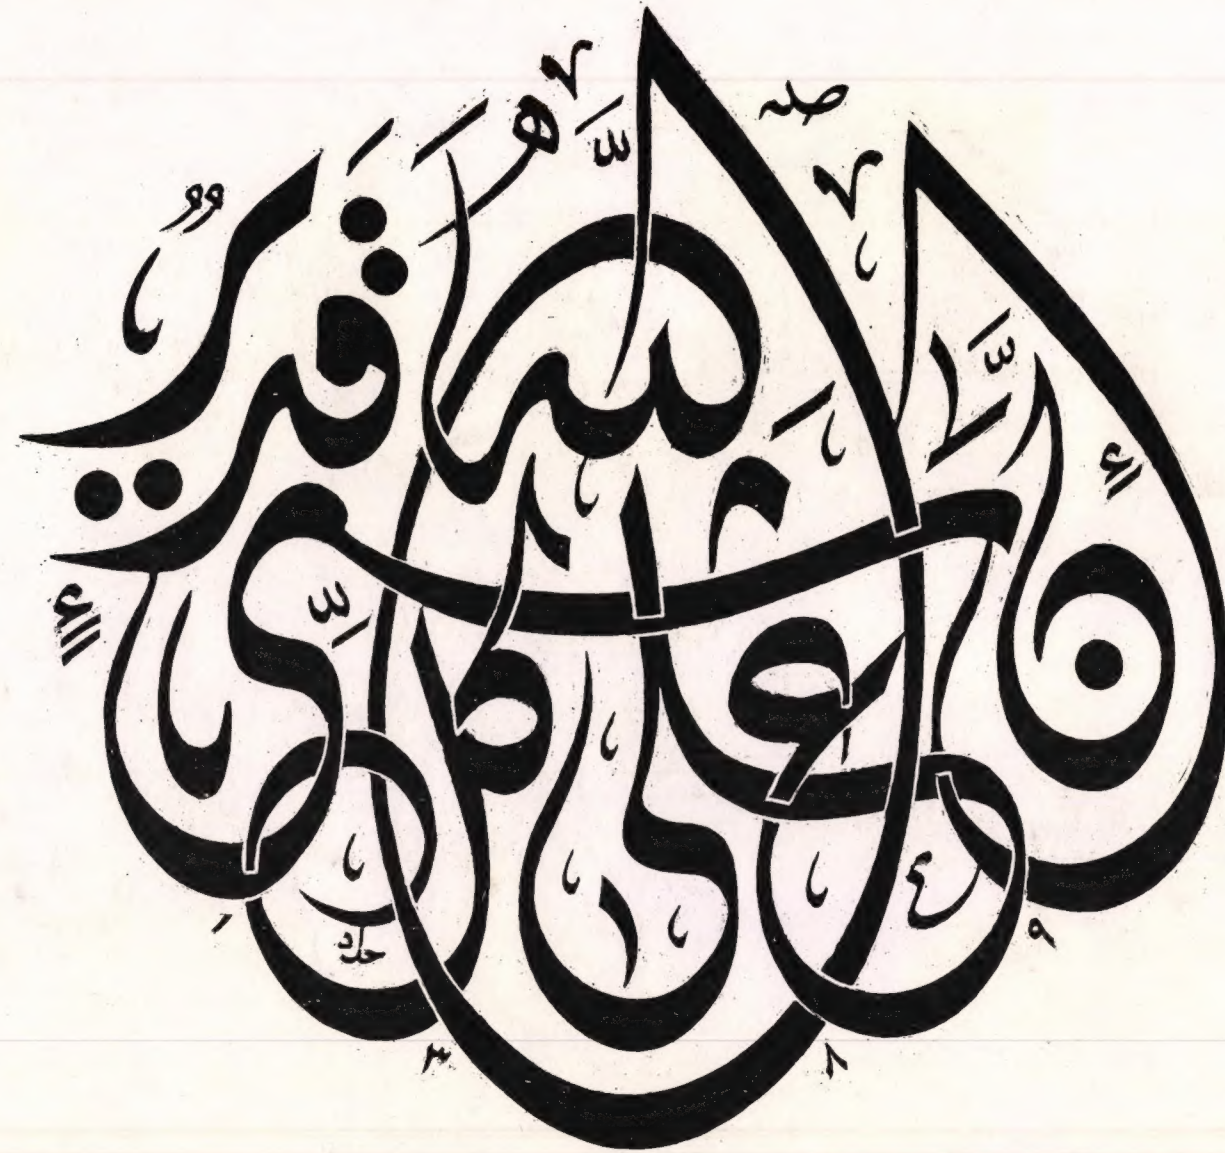 إِنَّ اللَّهَ عَلَىٰ كُلِّ شَيْءٍ قَدِيرٌ
حامد
١٣٨٩